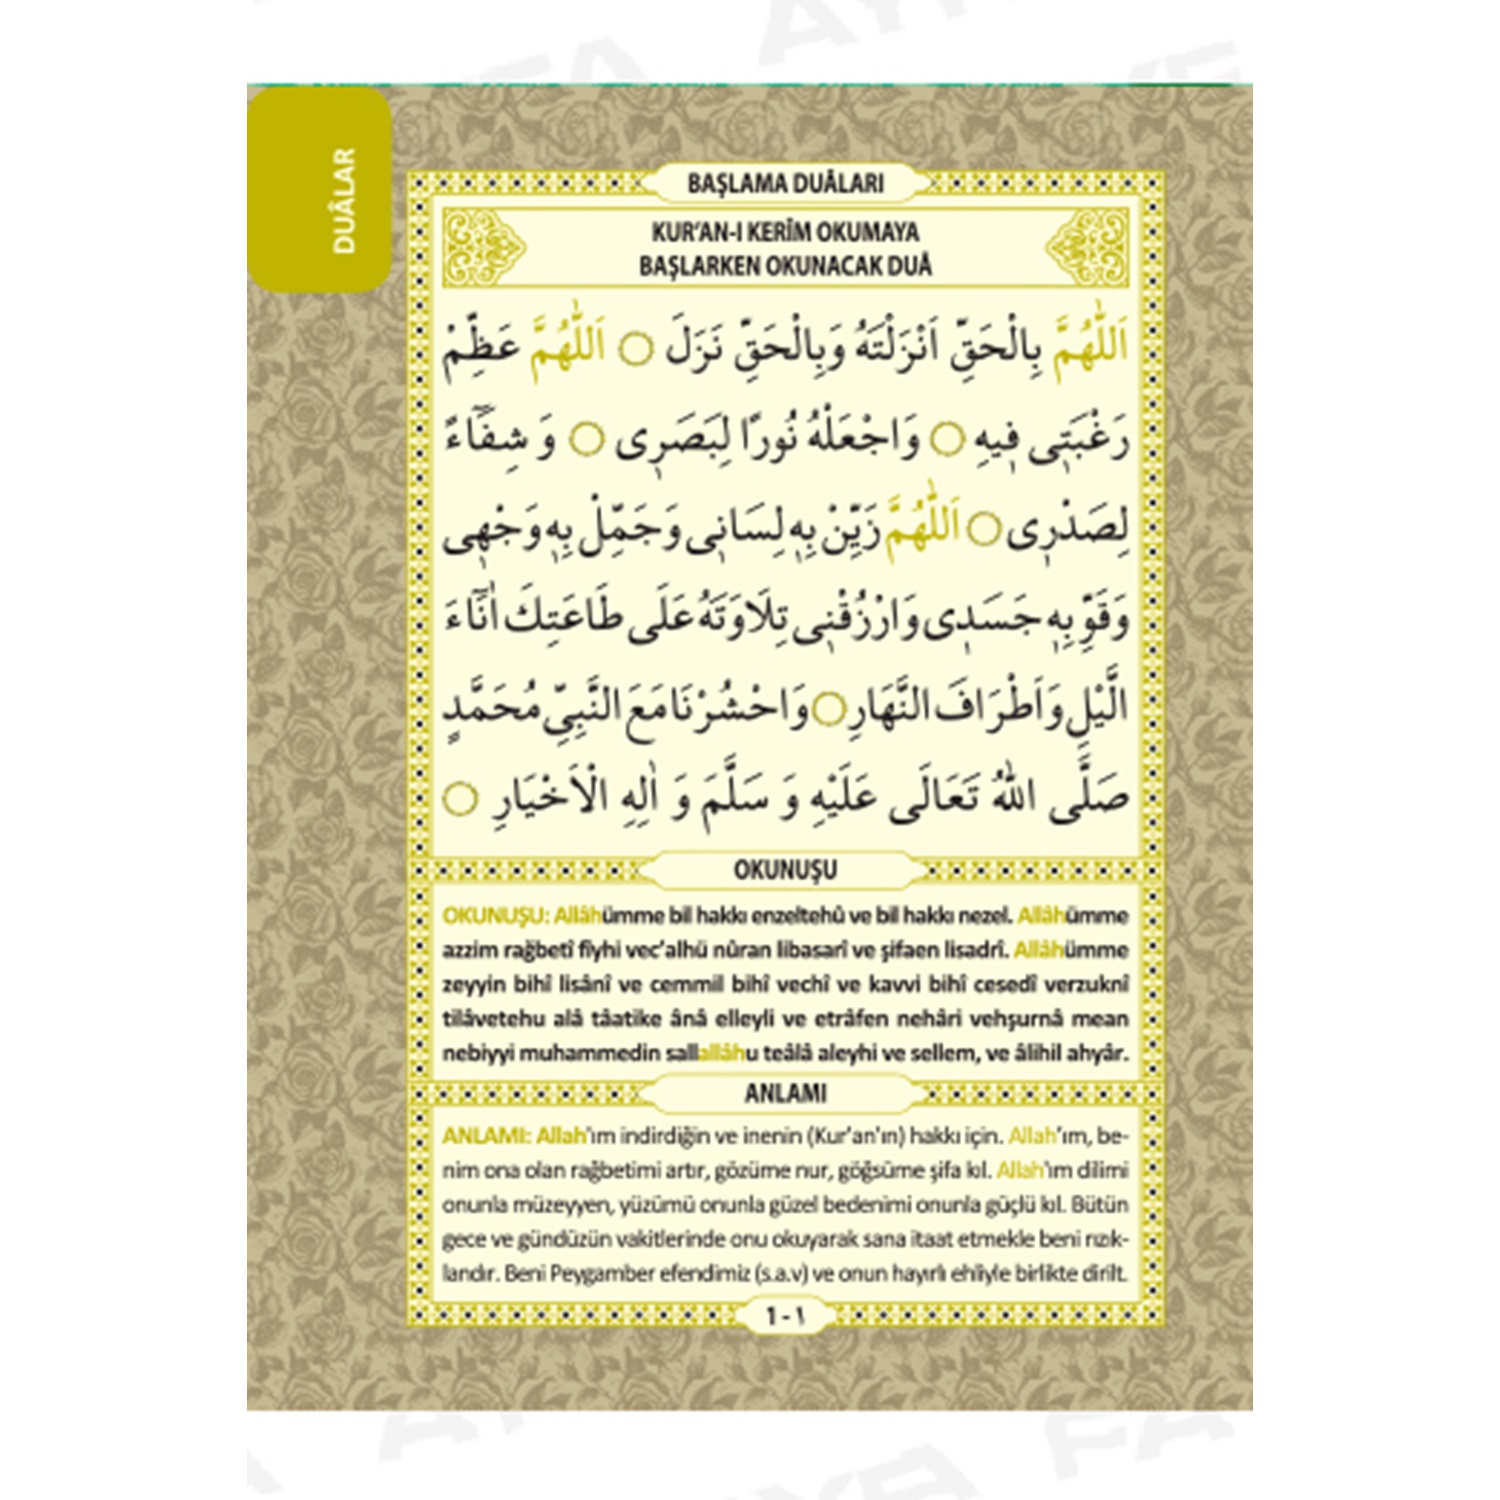 DUÂLAR
BAŞLAMA DUÂLARI
KUR'AN-I KERÎM OKUMAYA
BAŞLARKEN OKUNACAK DUÂ
اَللّٰهُمَّ بِالْحَقِّ اَنْزَلْتَهُ وَبِالْحَقِّ نَزَلَ ۝ اَللّٰهُمَّ عَظِّمْ
رَغْبَتٖى فٖيهِ ۝ وَاجْعَلْهُ نُورًا لِبَصَرٖى ۝ وَ شِفَٓاءً
لِصَدْرٖى ۝ اَللّٰهُمَّ زَيِّنْ بِهٖ لِسَانٖى وَجَمِّلْ بِهٖ وَجْهٖى
وَقَوِّ بِهٖ جَسَدٖى وَارْزُقْنٖى تِلَاوَتَهُ عَلَى طَاعَتِكَ اٰنَٓاءَ
الَّيْلِ وَاَطْرَافَ النَّهَارِ ۝ وَاحْشُرْنَا مَعَ النَّبِىِّ مُحَمَّدٍ
صَلَّى اللّٰهُ تَعَالَى عَلَيْهِ وَ سَلَّمَ وَ اٰلِهِ الْاَخْيَارِ ۝
OKUNUŞU
OKUNUŞU: Allâhümme bil hakkı enzeltehû ve bil hakkı nezel. Allâhümme
azzim rağbetî fîyhi vec'alhü nûran libasarî ve şifaen lisadrî. Allâhümme
zeyyin bihî lisânî ve cemmil bihî vechî ve kavvi bihî cesedî verzuknî
tilâvetehu alâ tâatike ânâ elleyli ve etrâfen nehâri vehşurnâ mean
nebiyyi muhammedin sallallâhu teâlâ aleyhi ve sellem, ve âlihil ahyâr.
ANLAMI
ANLAMI: Allah'ım indirdiğin ve inenin (Kur'an'ın) hakkı için. Allah'ım, be-
nim ona olan rağbetimi artır, gözüme nur, göğsüme şifa kıl. Allah'ım dilimi
onunla müzeyyen, yüzümü onunla güzel bedenimi onunla güçlü kıl. Bütün
gece ve gündüzün vakitlerinde onu okuyarak sana itaat etmekle beni rızık-
landır. Beni Peygamber efendimiz (s.a.v) ve onun hayırlı ehliyle birlikte dirilt.
1 - ١